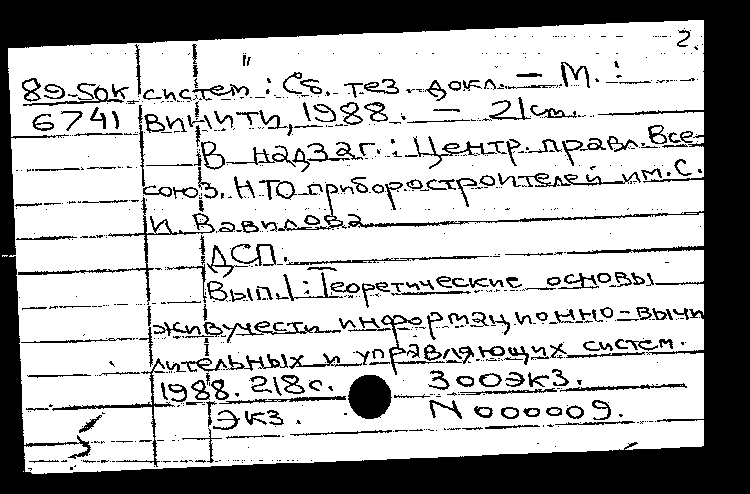 2.
89-50к систем : Сб. тез. докл. – М. :
6741 ВИНИТИ, 1988. – 21cm.
В надзаг. : Центр. правл. Все-
союз. НТО приборостроителей им. С.
И. Вавилова
ДСП.
Вып. 1 : Теоретические основы
живучести информационно-вычи
лительных и управляющих систем.
1988. 218с. 300экз.
Экз. N 000009.